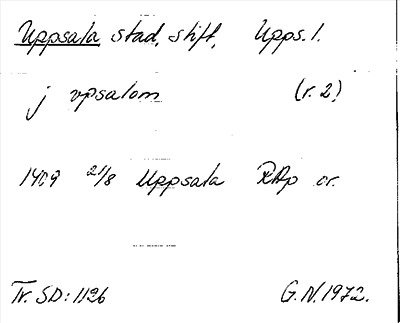 Uppsala, stad, stift, Upps. l.
j vpsalom (r. 2)
1409 21/8 Uppsala RAp or.
Tr. SD: 1126 G.N. 1972.